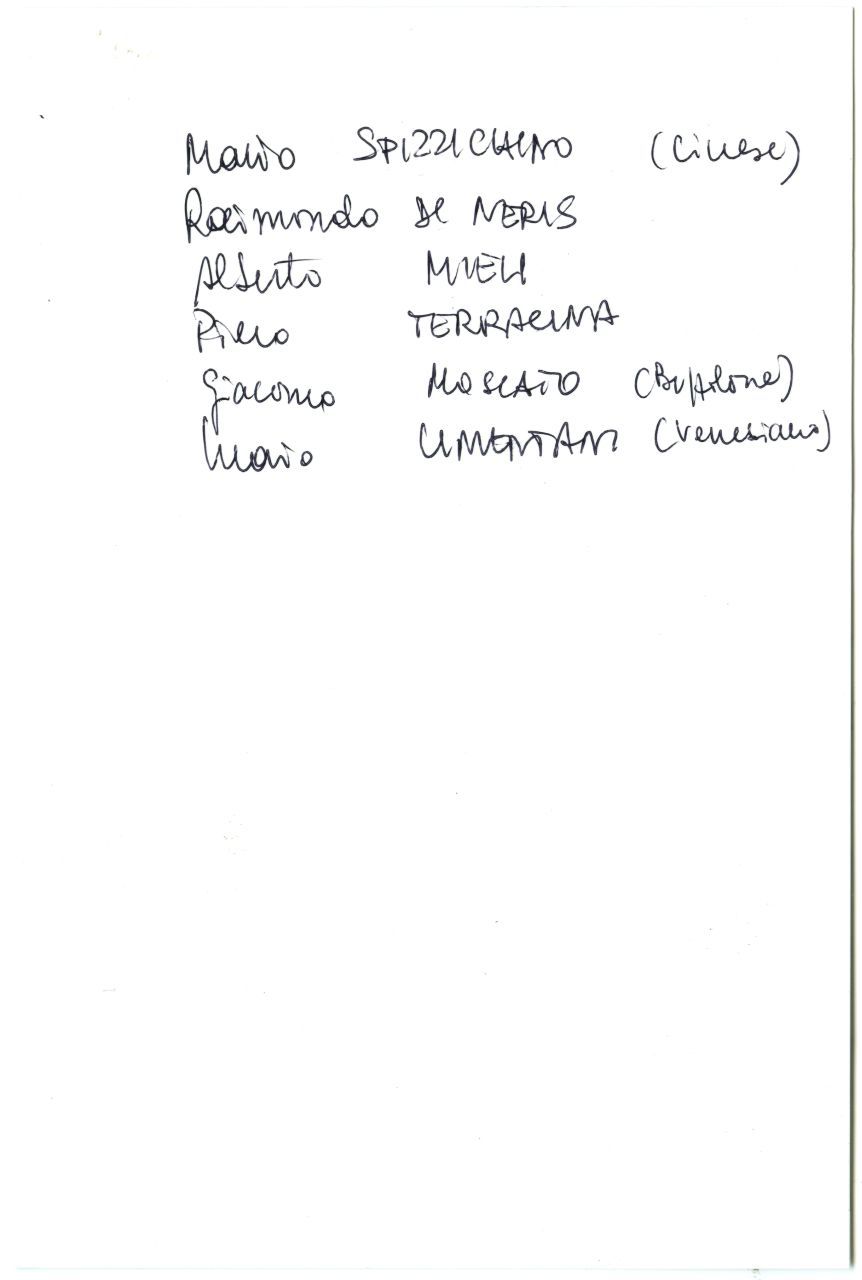 Mario SPIZZICHINO (Cinese)
Raimondo DI NERIS
Alberto MIELI
Piero TERRACINA
Giacomo MOSCATO (Bufalone)
Mario LIMENTANI (Veneziano)